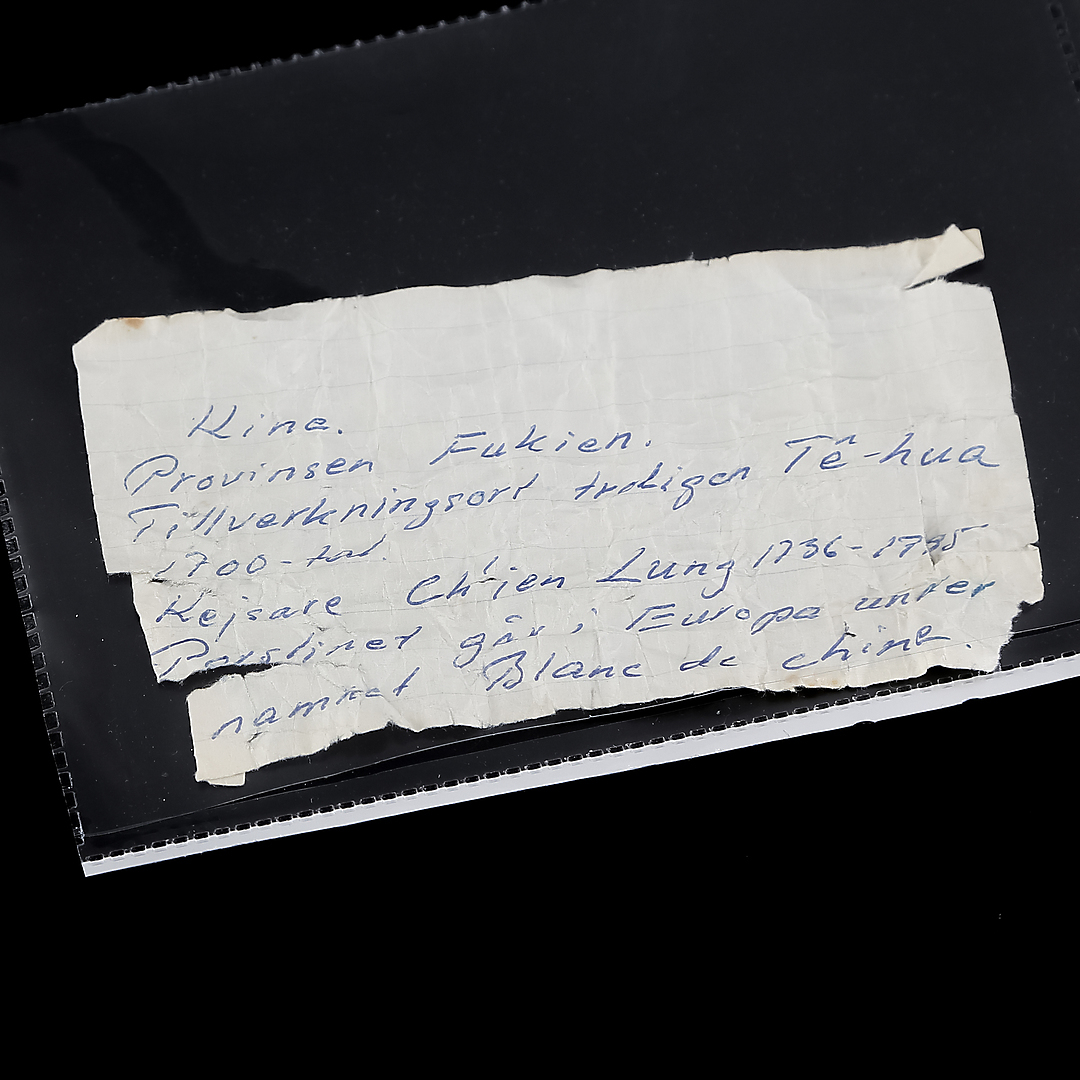 Kina.
Provinsen Fukien.
Tillverkningsort troligen Tê-hua
1700-tal.
Kejsare Ch'ien Lung 1736-1795
Porslinet går i Europa under
namnet Blanc de chine.